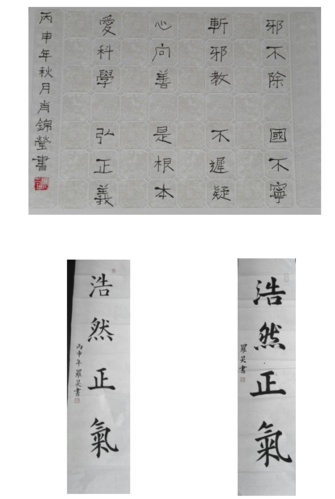 邪不除 國不寧
斬邪教 不遲疑
心向善 是根本
愛科學 弘正義
丙申年秋月肖錦瑩書
浩然正氣
丙申年羅炅書
浩然正氣
羅炅書